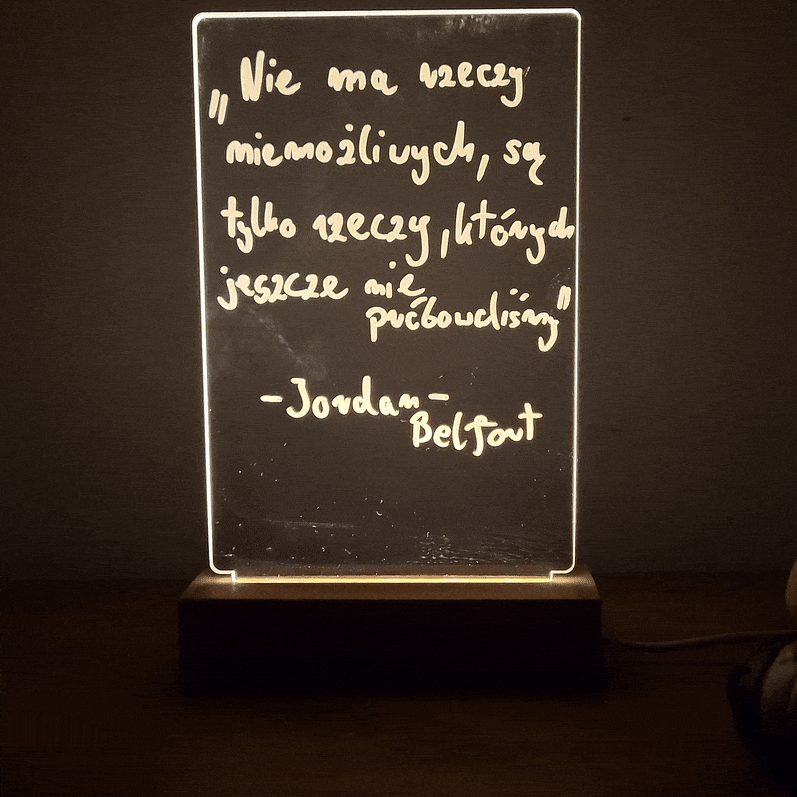 „Nie ma rzeczy
niemożliwych, są
tylko rzeczy, których
jeszcze nie
próbowaliśmy"
-Jordan-
Belfort